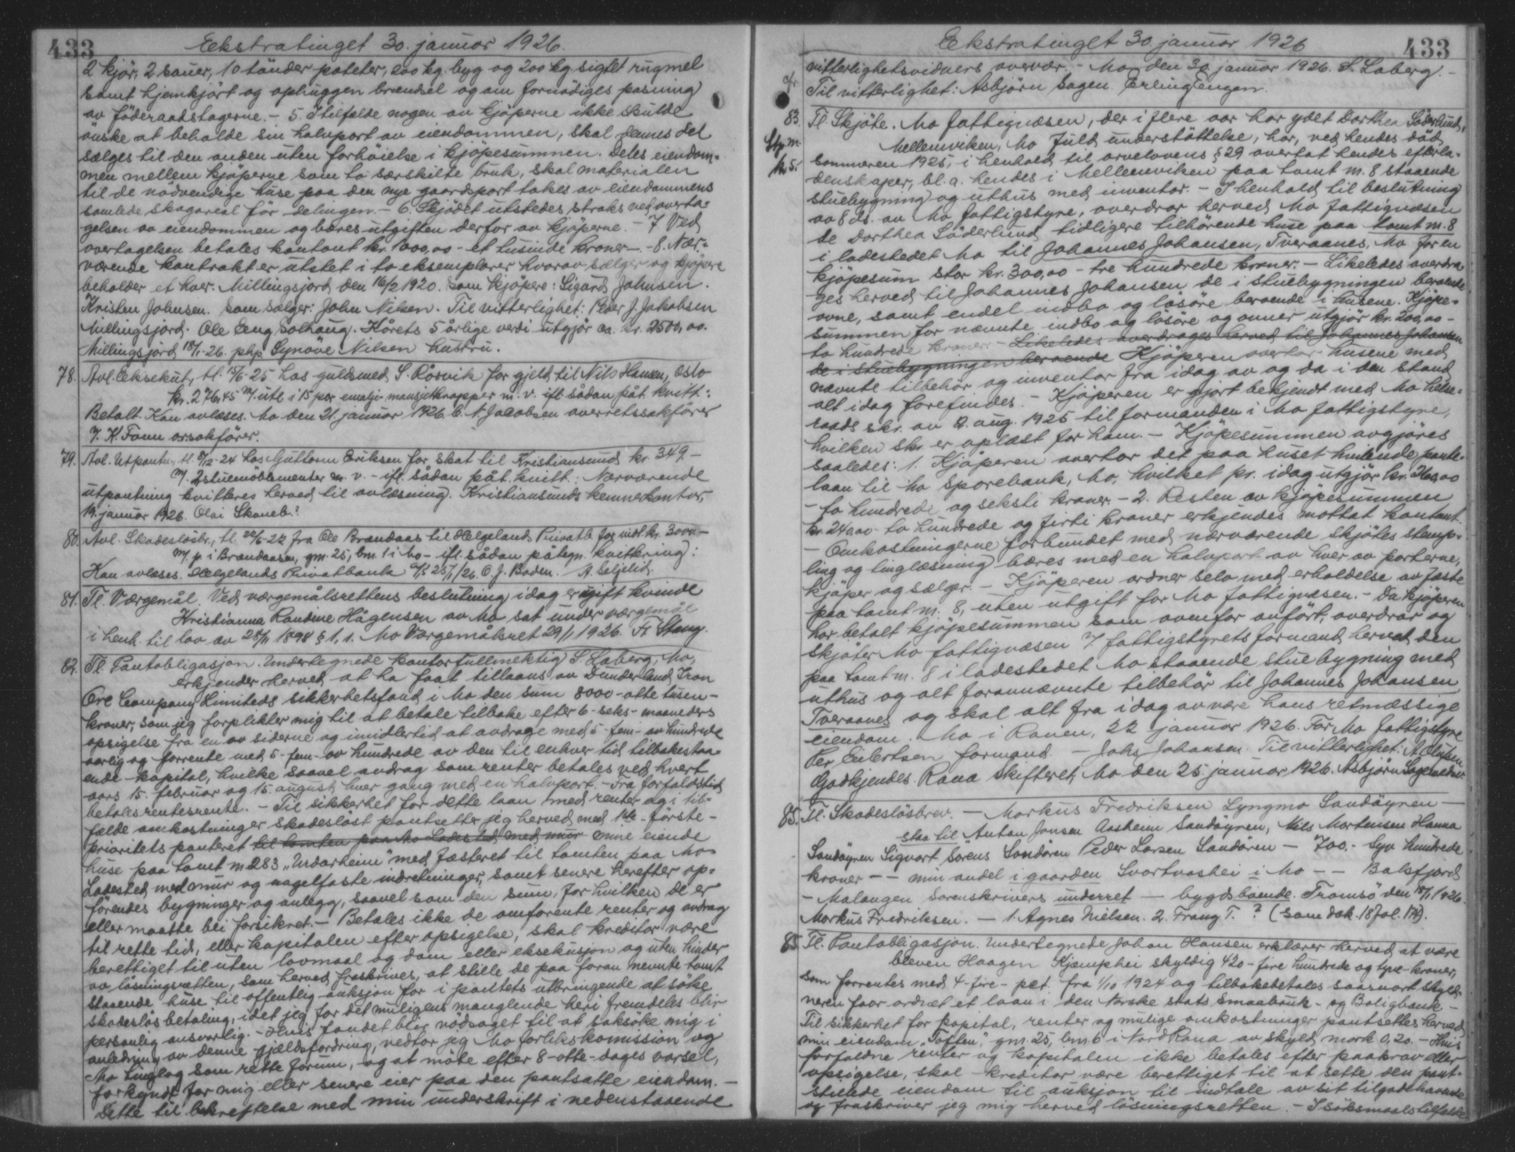 433
Ekstratinget 30. januar 1926.
2 kjör, 2 sauer, 10 tönder poteter, 200 kg. byg og 200 kg. sigtet rugmel
samt hjemkjört og ophuggen brændsel og om fornödiges pasning
av föderaadstagerne. - 5. I tilfelde nogen av kjöperne ikke skulde
önske at beholde sin halvpart av eiendommen, skal dennes del
sælges til den anden uten forhöielse i kjöpesummen. Deles eiendom-
men mellem kjöperne som to særskilte bruk, skal materialen
til de nödvendige huse paa den nye gaardspart takes av eiendommens
samlede skogareal för delingen. - 6. Skjödet utstedes straks ved overta-
gelsen av eiendommen og bæres utgiften derfor av kjöperne. - 7. Ved
overtagelsen betales kontant kr. 1000,00 - et tusinde kroner - 8. Nær-
værende kontrakt er utstet i to eksemplarer hvorav sælger og kjöpere
beholder et hver. Millingsjord, den 16/2 1920. Som kjöpere: Sigurd Johnsen.
Kristen Johnsen. Som sælger: John Nilsen. Til vitterlighet: Peder J. Jakobsen
Millingsjord. Ole Eng Solhaug. Kårets 5 årlige verdi utgjör ca. kr. 2500,00.
Millingsjord 18/1-26. Synöve Nilsen hustru.
78. Avl. Eksekut, tl. 25 hos guldsmed S. Rösvik for gjeld til Nils Hansen, Oslo
kr. 276,45 m/ utl. i 15 par emalje mansjetknapper m. v. ifl. sådan påt. kvitt.:
Betalt. Kan avlæses. Mo den 21 januar 1926. A. Jacobsen overretssakförer
7. K. Fonn orsakförer.
79. Avl. Utpantn. tl. 24 hos Guttorm Eriksen for skat til Kristiansund kr. 349.-
m/ m. v. - ifl. sådan påt. kvitt.: Nærværende
utpantning kvitteres herved til avlæsning. Kristiansunds kemnerkontor,
19. januar 1926. Olai Skoneb?
80. Avl. Skadeslösbr. tl. 22 fra Ole Brandaas til Helgelands Privatb. for indt. kr. 3000.-
m/ p. i Brandaasen, gn. 25, bn. 1 i Mo - ifl. sådan påtegn. kvittering:
Kan avlæses. Helgelands Privatbank 25/1/26. O. J. Boden.
81. Tl. Værgemål. Ved værgemålsrettens beslutning i dag er ugift kvinde
Kristianna Randine Hågensen av Mo sat under værgemål
i henh. til lov av 28/11 1898 § 1, 1. Mo Værgemålsret 29/1 1926. Fr. Stang.
82. Tl. Pantobligasjon. Undertegnede kontorfullmektig S. Laberg, Mo,
erkjender herved at ha faat tillaans av Dunderland Iron
Ore Company Limiteds sikkerhetsfond i Mo den sum 8000 - otte tusen -
kroner, som jeg forplikter mig til at betale tilbake efter 6 - seks - maaneders
opsigelse fra en av siderne og imidlertid at avdrage med 5 - fem - av hundrede
aarlig og forrente med 5 - fem - av hundrede av den til enhver tid tilbakestaa-
ende kapital, hvilke saavel avdrag som renter betales ved hvert
aars 15. februar og 15 august, hver gang med en halvpart. Fra forfaldstid
betales rentesrente. - Til sikkerhet for dette laan med renter og i til-
fælde omkostninger skadeslöst pantsetter jeg herved med 1ste - förste -
prioritets panteret til tomten paa Mo Ladested med mur mine eiende
huse paa tomt m 283 "Nordheim" med fæsteret til tomten paa Mo
Ladested, med mur og nagelfaste indretninger, samt senere herefter op-
förendes bygninger og anlegg, saavel som den sum, for hvilken de er
eller maatte bli forsikret. - Betales ikke de omforente renter og avdrag
til rette tid, eller kapitalen efter opsigelse, skal kreditor være
berettiget til uten lovmaal og dom eller eksekusjon og uten hinder
av lösningsretten, som herved fraskrives, at stille de paa foran nevnte tomt
staaende huse til offentlig auksjon for i pantets utbringende at söke
skadeslös betaling, idet jeg for det muligens manglende heri fremdeles blir
personlig ansvarlig. - Hvis fondet blir nödsaget til at saksöke mig i
anledning av denne gjældsfordring, vedtar jeg Mo forlikskomission og
Mo tinglag som rette forum, og at möte efter 8 - otte - dages varsel,
forkyndt for mig eller senere eier paa den pantsatte eiendom. -
Dette til bekreftelse med min underskrift i nedenstaaende
433
Ekstratinget 30 januar 1926
vitterlighetsvidners overvær. - Mo, den 30 januar 1926. S. Laberg. -
Til vitterlighet: Asbjörn Sagen. Erling Engen.
83. Tl. Skjöte. Mo fattigvæsen, der i flere aar har ydet Dorthea Söderlund,
Mellemviken, Mo fuld understöttelse, har, ved hendes död
sommeren 1925, i henhold til arvelovens § 29 overtat hendes efterla-
denskaper, bl. a. hendes i Mellemviken paa tomt m. 8 staaende
stuebygning og uthus med inventar. - I henhold til beslutning
av 8 ds. av Mo fattigstyre, overdrar herved Mo fattigvæsen
de Dorthea Söderlund tidligere tilhörende huse paa tomt m. 8
i ladestedet Mo til Johannes Johansen, Tveraanes, Mo for en
kjöpesum stor kr. 300,00 - tre hundrede kroner. - Likeledes overdra-
ges herved til Johannes Johansen de i stuebygningen beroende
ovne, samt endel indbo og lösöre beroende i husene. Kjöpe-
summen for nævnte indbo og lösöre og ovner utgjör kr. 200,00 -
to hundrede kroner. - Likeledes overdrages herved til Johannes Johansen
de i stuebygningen beroende Kjöperen overtar husene med
nævnte tilbehör og inventar fra idag av og da i den stand
alt idag forefindes. - Kjöperen er gjort bekjendt med Mo helse-
raads skr. av 2. aug. 1925 til formanden i Mo fattigstyre,
hvilken skr. er oplæst for ham. - Kjöpesummen avgjöres
saaledes: 1. Kjöperen overtar det paa huset hvilende pante-
laan til Mo Sparebank, Mo, hvilket pr. idag utgjör kr. 260,00
- to hundrede og seksti kroner. - 2. Resten av kjöpesummen
kr. 240,00 - to hundrede og firti kroner erkjendes mottat kontant.
- Omkostningerne forbundet med nærværende skjötes stemp-
ling og tinglæsning bæres med en halvpart av hver av parterne,
kjöper og sælger. - Kjöperen ordner selv med erholdelse av fæste
paa tomt m. 8, uten utgift for Mo fattigvæsen. - Da kjöperen
har betalt kjöpesummen som ovenfor anfört, overdrar og
skjöter Mo fattigvæsen v/ fattigstyrets formand herved den
paa tomt m. 8 i ladestedet Mo staaende stuebygning med
uthus og alt forannævnte tilbehör til Johannes Johansen
Tveraanes og skal alt fra idag av være hans retmæssige
eiendom. Mo i Ranen, 22 januar 1926. For Mo fattigstyre
Per Eilertsen formand - Johs Johansen. Til vitterlighet:
Godkjendes. Rana skifteret, Mo den 25 januar 1926. Asbjörn Sagen
85. Tl. Skadeslösbrev. - Markus Fredriksen Lyngmo Sandöyren -
ska til Anton Jensen Aasheim Sandöyren, Nils Mortensen Hanna
Sandöyren Sigvart Sörens Sandören Peder Larsen Sandören - 700.- syv hundrede
kroner - - min andel i gaarden Svortvashei i Mo - - Balsfjord
- Malangen Sorenskrivers underret - bygds boende. Tromsö den 18/1 1926.
Markus Fredriksen. - 1. Agnes Nielsen. 2. Trang T. ? (som dok. 18 fol. 174).
85. Tl. Pantobligasjon. Undertegnede Johan Hansen erklærer herved at være
bleven Haagen Kjæmphei skyldig 420 - fire hundrede og tyve - kroner,
som forrentes med 4 - fire - pct. fra 1/10 1924 og tilbakebetales saasnart skyld-
neren faar ordnet et laan i den Norske stats Smaabruk- og Boligbank. -
Til sikkerhet for kapital, renter og mulige omkostninger pantsettes herved
min eiendom "Toften" gn. 25, bn. 6 i Nord Rana av skyld mark 0,20. - Hvis
forfaldne renter og kapitalen ikke betales efter paakrav eller
opsigelse, skal kreditor være berettiget til at sette den pant-
stillede eiendom til auksjon til indtale av sit tilgodehavende
og fraskriver jeg mig herved lösningsretten. - I söksmaalstilfælde